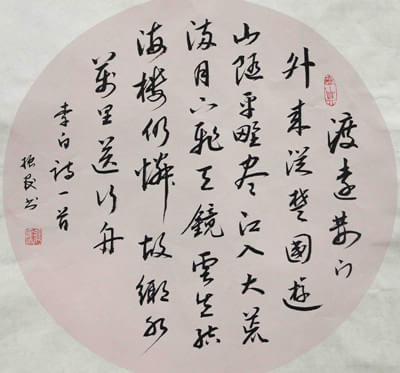 渡遠荊门
外來從楚國遊
山随平野盡江入大荒
流月下飛天鏡雲生结
海楼仍憐故鄉水
萬里送行舟
李白诗一首
书